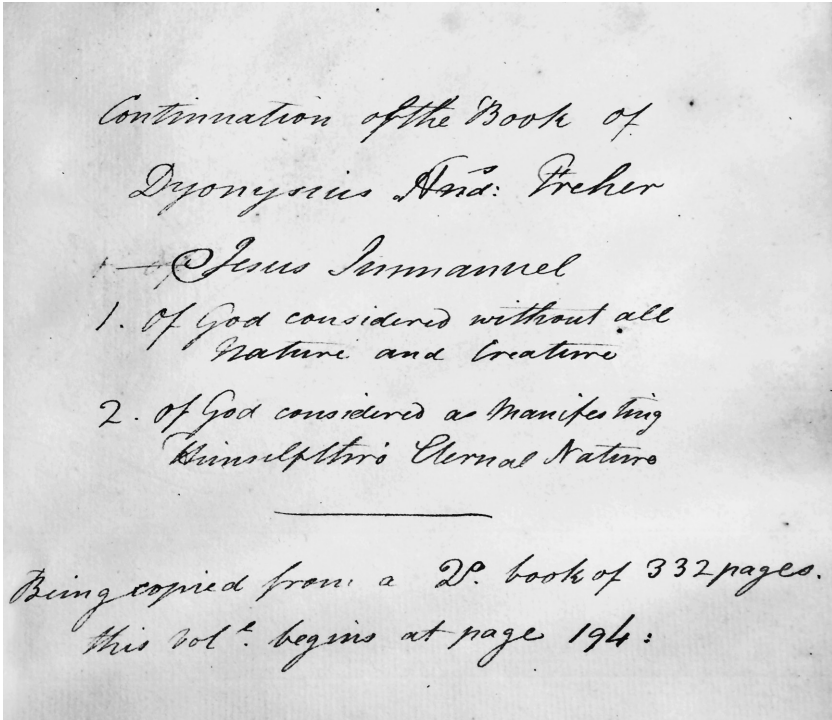 Continuation of the Book of
Dyonysius And:s Freher
Jesus Immanuel
1. Of God considered without all
Nature and Creature
2. Of God considered as Manifesting
Himself thro Eternal Nature
Being copied from a 2o. book of 332 pages.
this Vole. begins at page 194: